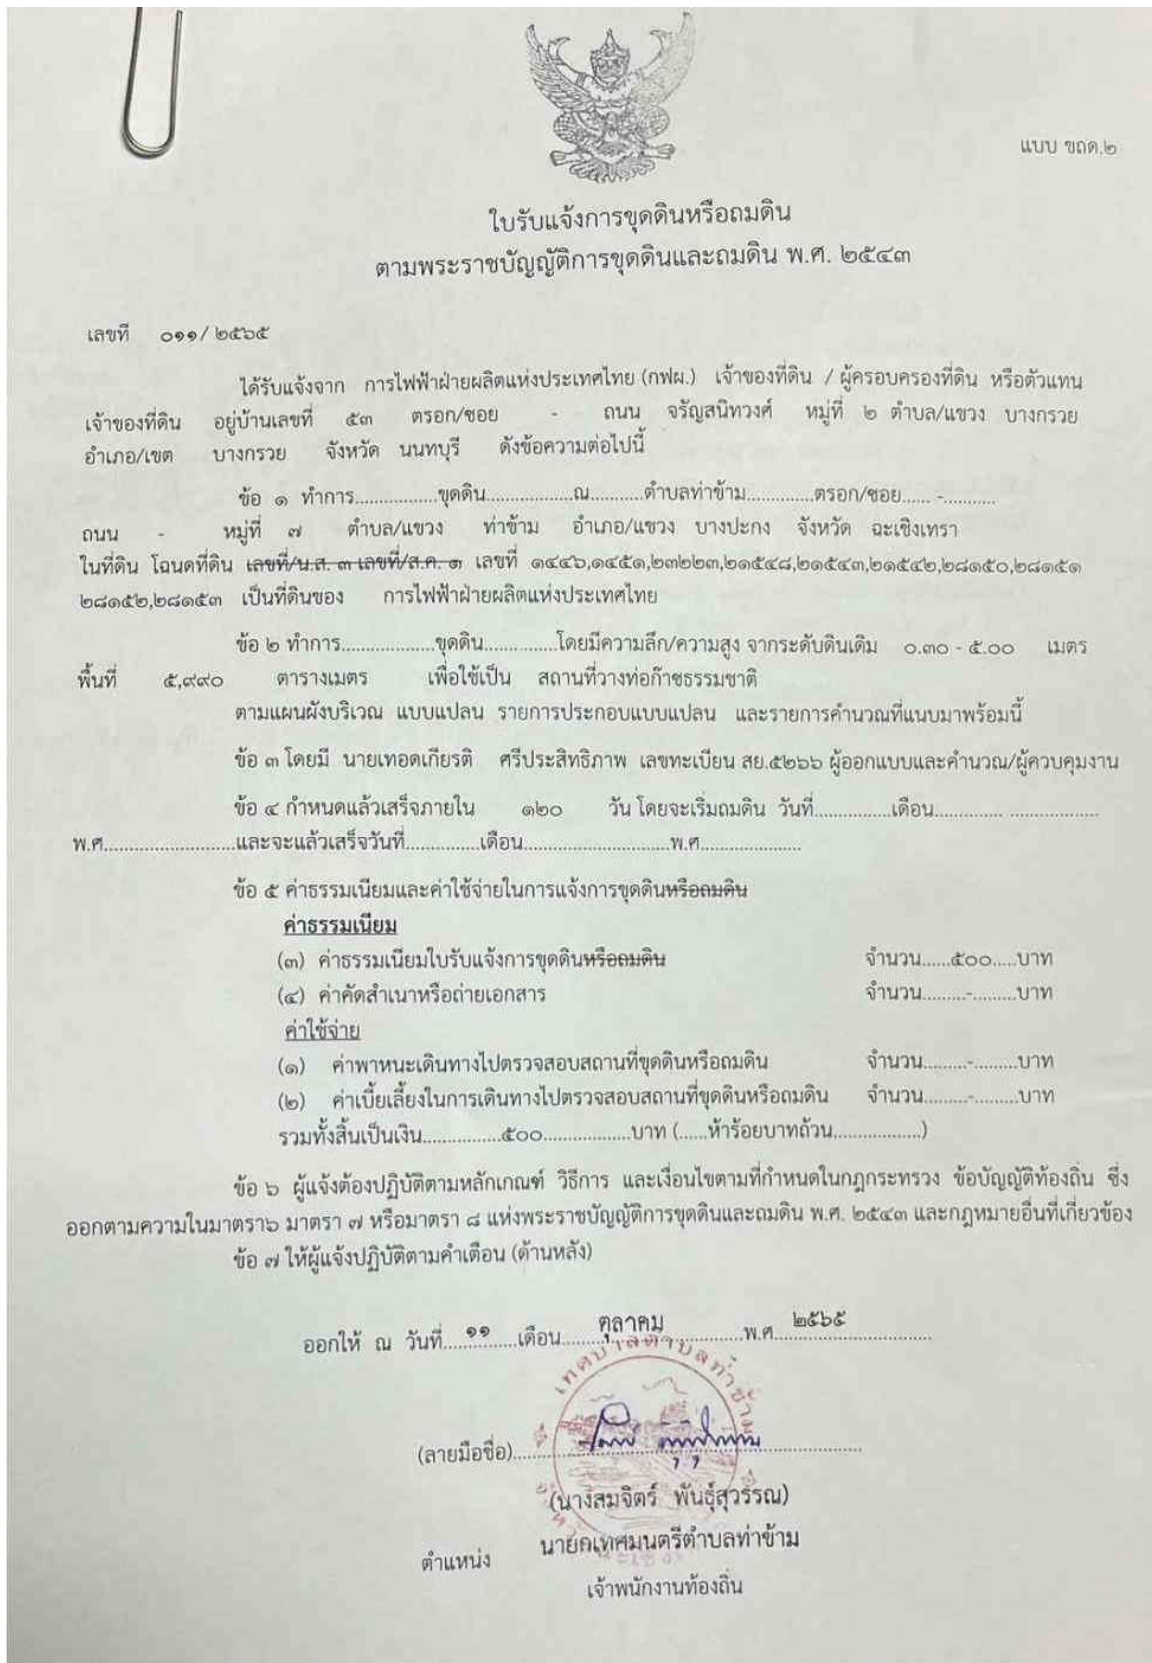 แบบ ขถด.๒
ใบรับแจ้งการขุดดินหรือถมดิน
ตามพระราชบัญญัติการขุดดินและถมดิน พ.ศ. ๒๕๔๓
เลขที่ ๐๑๑/๒๕๖๕
ได้รับแจ้งจาก การไฟฟ้าฝ่ายผลิตแห่งประเทศไทย (กฟผ.) เจ้าของที่ดิน / ผู้ครอบครองที่ดิน หรือตัวแทน
เจ้าของที่ดิน อยู่บ้านเลขที่ ๕๓ ตรอก/ซอย - ถนน จรัญสนิทวงศ์ หมู่ที่ ๒ ตำบล/แขวง บางกรวย
อำเภอ/เขต บางกรวย จังหวัด นนทบุรี ดังข้อความต่อไปนี้
ข้อ ๑ ทำการ.................ขุดดิน..................ณ...........ตำบลท่าข้าม..............ตรอก/ซอย...... -...........
ถนน - หมู่ที่ ๗ ตำบล/แขวง ท่าข้าม อำเภอ/แขวง บางปะกง จังหวัด ฉะเชิงเทรา
ในที่ดิน โฉนดที่ดิน เลขที่/น.ส. ๓ เลขที่/ส.ค. ๑ เลขที่ ๑๔๔๖,๑๔๕๑,๒๓๒๒๓,๒๑๕๔๘,๒๑๕๔๓,๒๑๕๔๒,๒๘๑๕๐,๒๘๑๕๑
๒๘๑๕๒,๒๘๑๕๓ เป็นที่ดินของ การไฟฟ้าฝ่ายผลิตแห่งประเทศไทย
ข้อ ๒ ทำการ...................ขุดดิน...............โดยมีความลึก/ความสูง จากระดับดินเดิม ๐.๓๐ - ๕.๐๐ เมตร
พื้นที่ ๕,๙๙๐ ตารางเมตร เพื่อใช้เป็น สถานที่วางท่อก๊าซธรรมชาติ
ตามแผนผังบริเวณ แบบแปลน รายการประกอบแบบแปลน และรายการคำนวณที่แนบมาพร้อมนี้
ข้อ ๓ โดยมี นายเทอดเกียรติ ศรีประสิทธิภาพ เลขทะเบียน สย.๕๒๖๖ ผู้ออกแบบและคำนวณ/ผู้ควบคุมงาน
ข้อ ๔ กำหนดแล้วเสร็จภายใน ๑๒๐ วัน โดยจะเริ่มถมดิน วันที่................เดือน.............. ..................
พ.ศ...........................และจะแล้วเสร็จวันที่...............เดือน..............................พ.ศ.....................
ข้อ ๕ ค่าธรรมเนียมและค่าใช้จ่ายในการแจ้งการขุดดินหรือถมดิน
ค่าธรรมเนียม
(๓) ค่าธรรมเนียมใบรับแจ้งการขุดดินหรือถมดิน จำนวน......๕๐๐.....บาท
(๔) ค่าคัดสำเนาหรือถ่ายเอกสาร จำนวน.........-.........บาท
ค่าใช้จ่าย
(๑) ค่าพาหนะเดินทางไปตรวจสอบสถานที่ขุดดินหรือถมดิน จำนวน.........-.........บาท
(๒) ค่าเบี้ยเลี้ยงในการเดินทางไปตรวจสอบสถานที่ขุดดินหรือถมดิน จำนวน.........-.........บาท
รวมทั้งสิ้นเป็นเงิน................๕๐๐..................บาท (......ห้าร้อยบาทถ้วน..................)
ข้อ ๖ ผู้แจ้งต้องปฏิบัติตามหลักเกณฑ์ วิธีการ และเงื่อนไขตามที่กำหนดในกฎกระทรวง ข้อบัญญัติท้องถิ่น ซึ่ง
ออกตามความในมาตรา๖ มาตรา ๗ หรือมาตรา ๘ แห่งพระราชบัญญัติการขุดดินและถมดิน พ.ศ. ๒๕๔๓ และกฎหมายอื่นที่เกี่ยวข้อง
ข้อ ๗ ให้ผู้แจ้งปฏิบัติตามคำเตือน (ด้านหลัง)
ออกให้ ณ วันที่.....๑๑.....เดือน........ตุลาคม................พ.ศ....๒๕๖๕................
เทศบาลตำบลท่าข้าม
(ลายมือชื่อ)......................................................................
(นางสมจิตร์ พันธุ์สุวรรณ)
ตำแหน่ง นายกเทศมนตรีตำบลท่าข้าม
เจ้าพนักงานท้องถิ่น